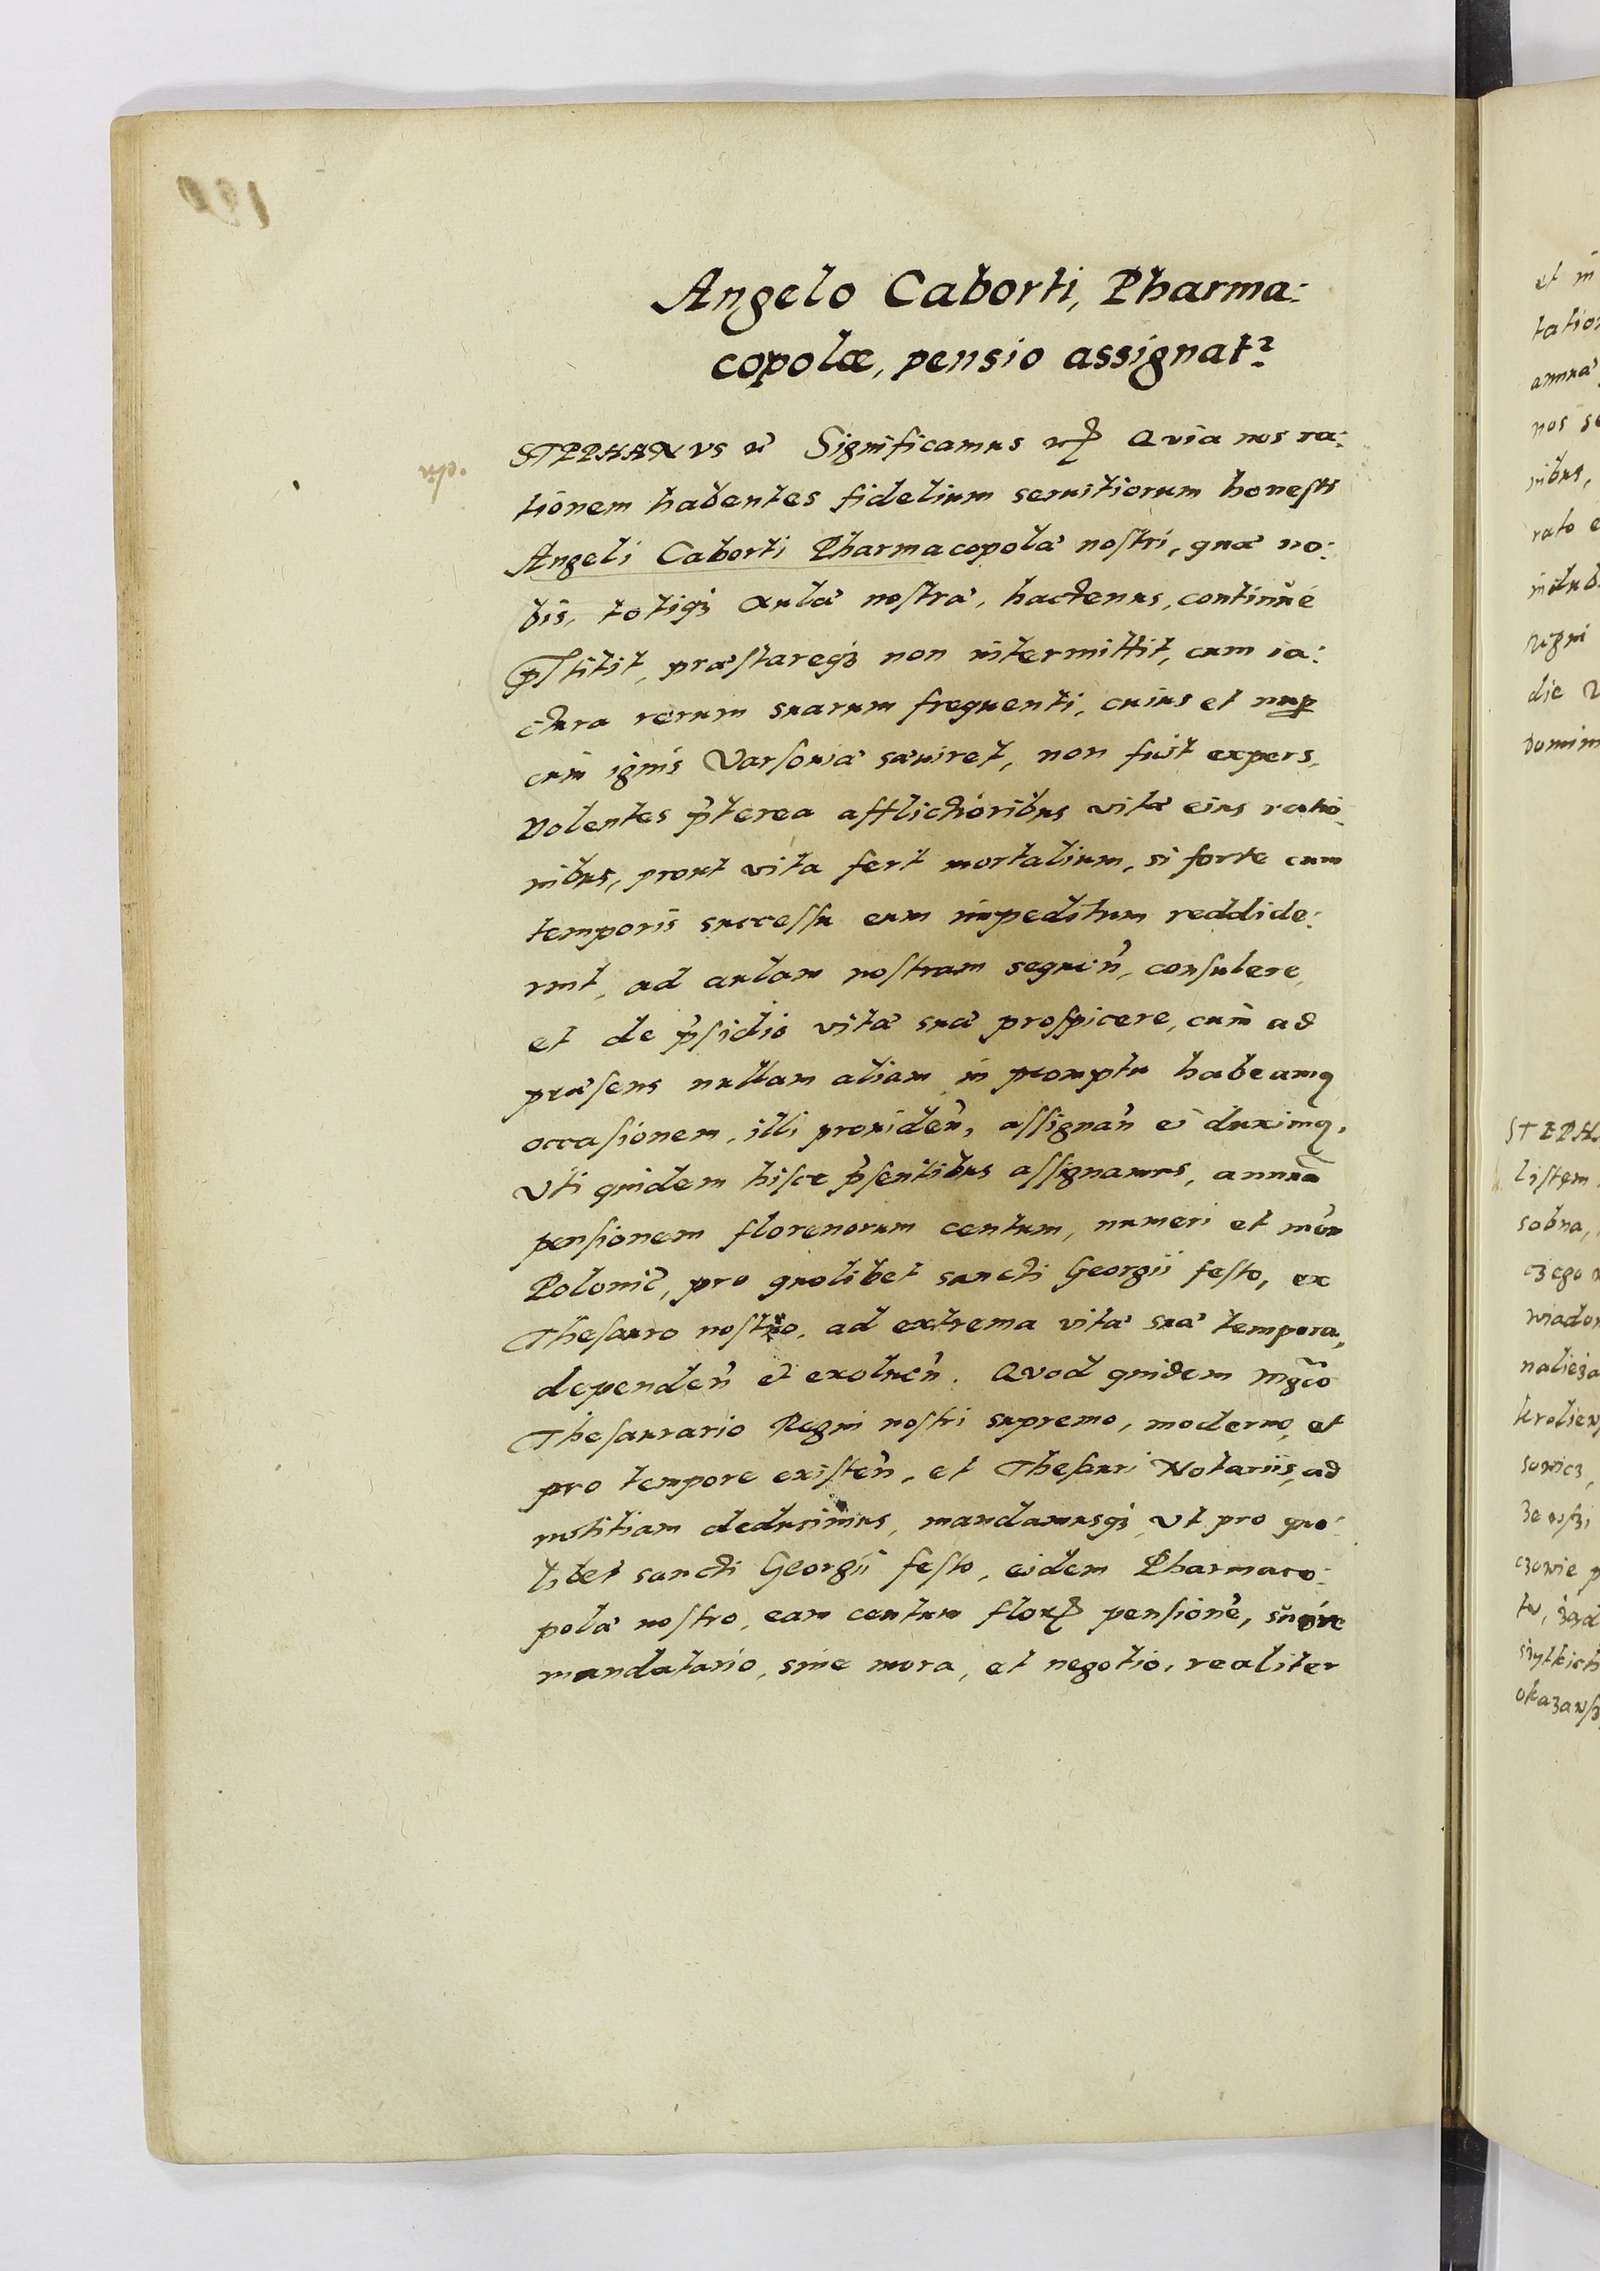 Angelo Caborti, Pharma:
copolæ, pensio assignat²
STEPHANVS Significamus Quia nos ra:
tionem habentes fidelium seruitiorum honesti
Angeli Caborti Pharmacopolæ nostri, quæ no:
bis, totiqȝ Aulæ nostræ, hactenus, continue
p̄stitit, præstareqȝ non intermittit, cum ia:
ctura rerum suarum frequenti, cuius et nup
cum ignis Varsoviæ sæuiret, non fuit expers,
Volentes p̄terea afflictioribus vitæ eius ratio:
nibus, prout vita fert mortalium, si forte cum
temporis successu eum impeditum reddide:
rint, ad aulam nostram sequen̄, consulere,
et de p̄sidio vitæ suæ prospicere, cum ad
præsens nullam aliam in promptu habeamq
occasionem, illi prouiden̄, assignan̄ ei duximq,
Vti quidem hisce p̄sentibus assignamus, annuā
pensionem florenorum centum, numeri et mōn
Polonic̄, pro quolibet sancti Georgii festo, ex
Thesauro nostro, ad extrema vitæ suæ tempora,
dependen̄ et exoluen̄. Quod quidem Mgc̄o
Thesaurario Regni nostri supremo, moderno, et
pro tempore existen̄, et Thesauri Notariis, ad
notitiam deducimus, mandamusqȝ, vt pro quo:
libet sancti Georgii festo, eidem Pharmaco:
polæ nostro, eam centum flor pensionē, siue
mandatario, sine mora, et negotio, realiter